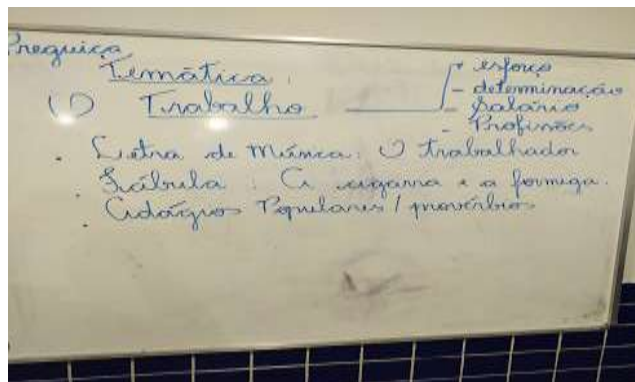 Preguiça
Temática:
O Trabalho
+ esforço
- determinação
- Salário
- Profissões
. Letra de Música: O trabalhador
. Fábula: A cigarra e a formiga.
. Adágios Populares / provérbios